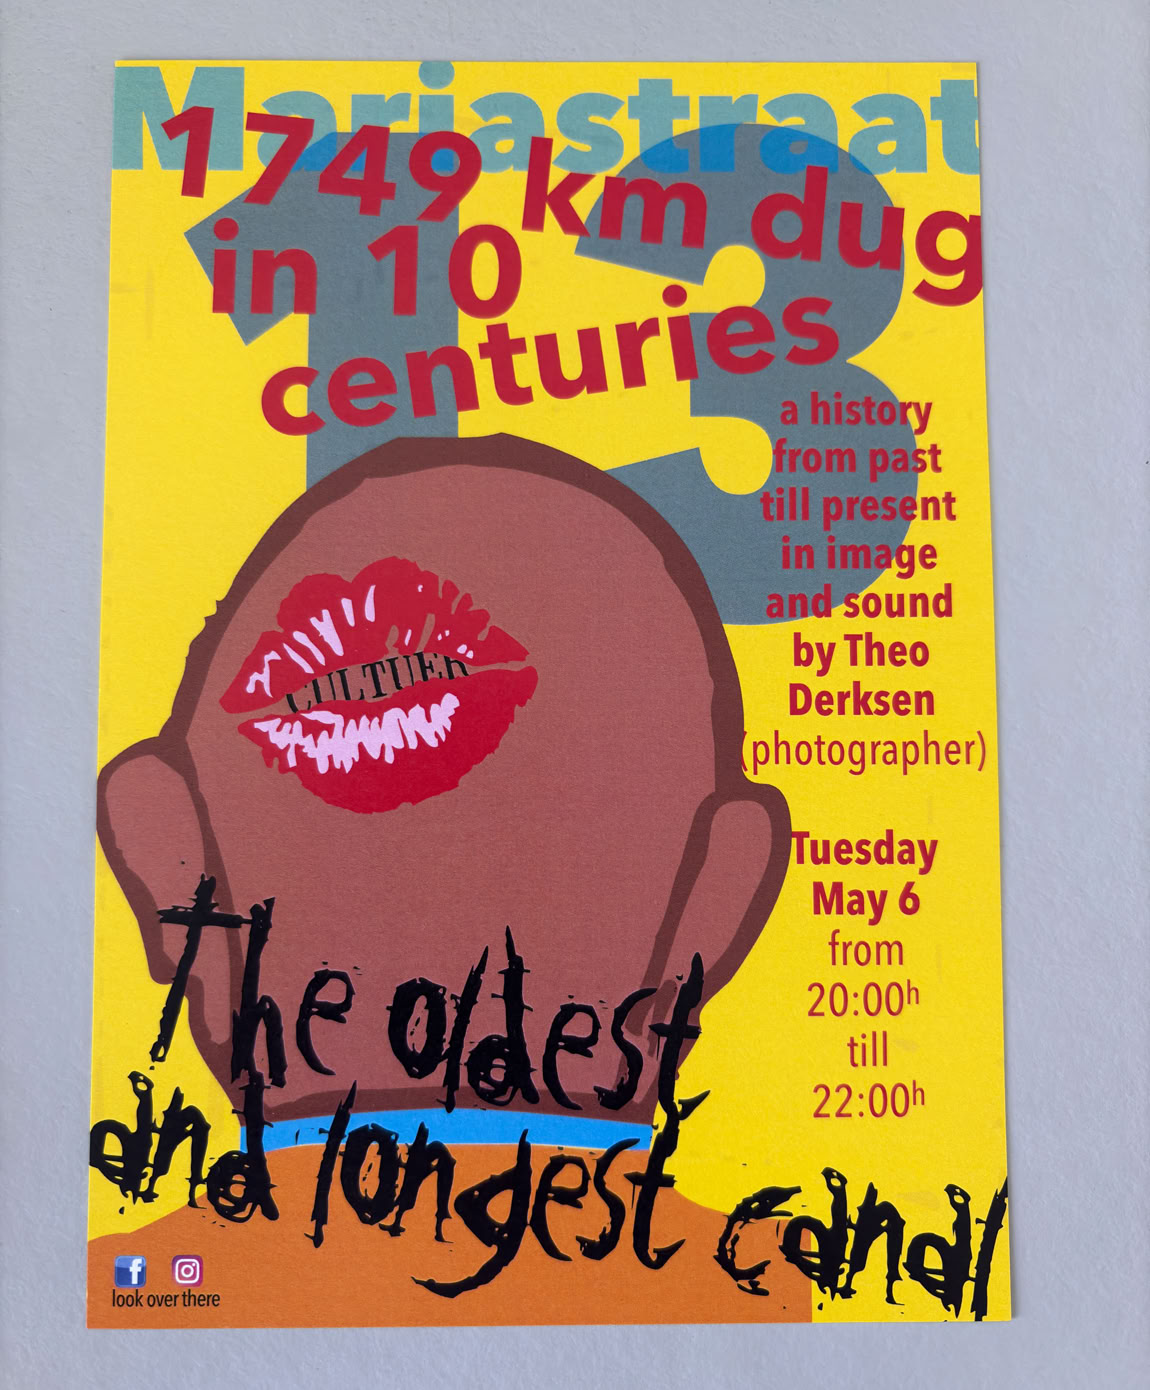 Mariastraat
13
1749 km dug
in 10
centuries
a history
from past
till present
in image
and sound
by Theo
Derksen
(photographer)
CULTUER
Tuesday
May 6
from
20:00h
till
22:00h
The oldest
and longest canal
f
look over there